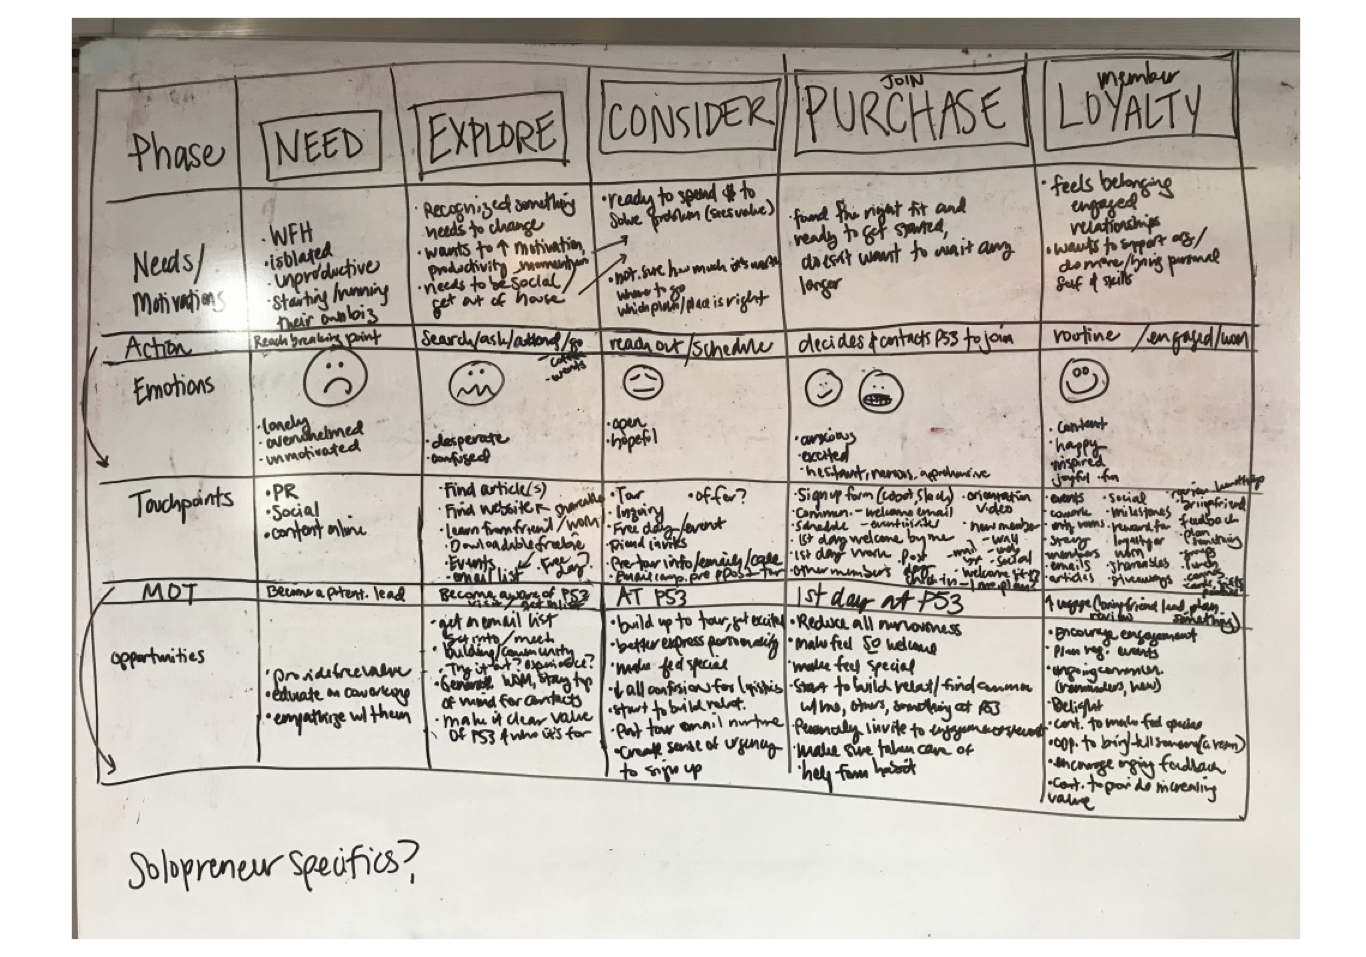 Phase
NEED
EXPLORE
CONSIDER
JOIN
PURCHASE
member
LOYALTY
Needs/
Motivations
• WFH
• isolated
unproductive
• starting/running
their own biz
• Recognized something
needs to change
• wants to ↑ motivation,
productivity momentum
• needs to be social/
get out of house
• ready to spend $ to
solve problem (sees value)
• not sure how much it's worth
where to go
which plan/place is right
• found the right fit and
ready to get started,
doesn't want to wait any
longer
• feels belonging
engaged
relationships
• wants to support org/
do more/bring personal
self & skills
Action
Reach breaking point
Search/ask/attend/go
- events
reach out/schedule
decides & contacts P53 to join
routine /engaged/wom
Emotions
• lonely
• overwhelmed
• unmotivated
• desperate
• confused
• open
• hopeful
• anxious
• excited
• hesitant, nervous, apprehensive
• content
• happy
• inspired
joyful • fun
Touchpoints
• PR
• Social
• content online
• Find article(s)
• Find website
• Learn from friend/wom
• Downloadable freebie
• Events ← Free day?
- email list
• Tour • offer?
• Inquiry
• Free day/event
• Pre-tour info/emails/
• Sign up form • orientation
video
• Commun. - welcome email
• new member
• 1st day welcome by me
• 1st day work
• other members
• events • social
• cowork • milestones • bring friend
feedback
• members • wom
• emails • shareables
• articles • giveaways
MOT
Become a potent. lead
Become aware of P53
AT P53
1st day at P53
Opportunities
• provide free value
• educate on coworking
• empathize w/ them
• get on email list
• Get into/meet
building/community
• Try it out? experience?
• Generate WOM, stay top
of mind for contacts
• make it clear value
of P53 & who it's for
• build up to tour, get excited
• better express personality
• make feel special
• start to build relat.
• Post tour email nurture
• Create sense of urgency
to sign up
• Reduce all nervousness
• make feel SO welcome
• make feel special
• Start to build relat/find common
w/ me, others, something at P53
• Personally invite to
• make sure taken care of
• help form habit
• Encourage engagement
• Plan reg. events
• ongoing
(reminders, new)
• Delight
• cont. to make feel special
• opp. to bring/tell someone
• encourage feedback
• Cont. to provide increasing
value
Solopreneur specifics?